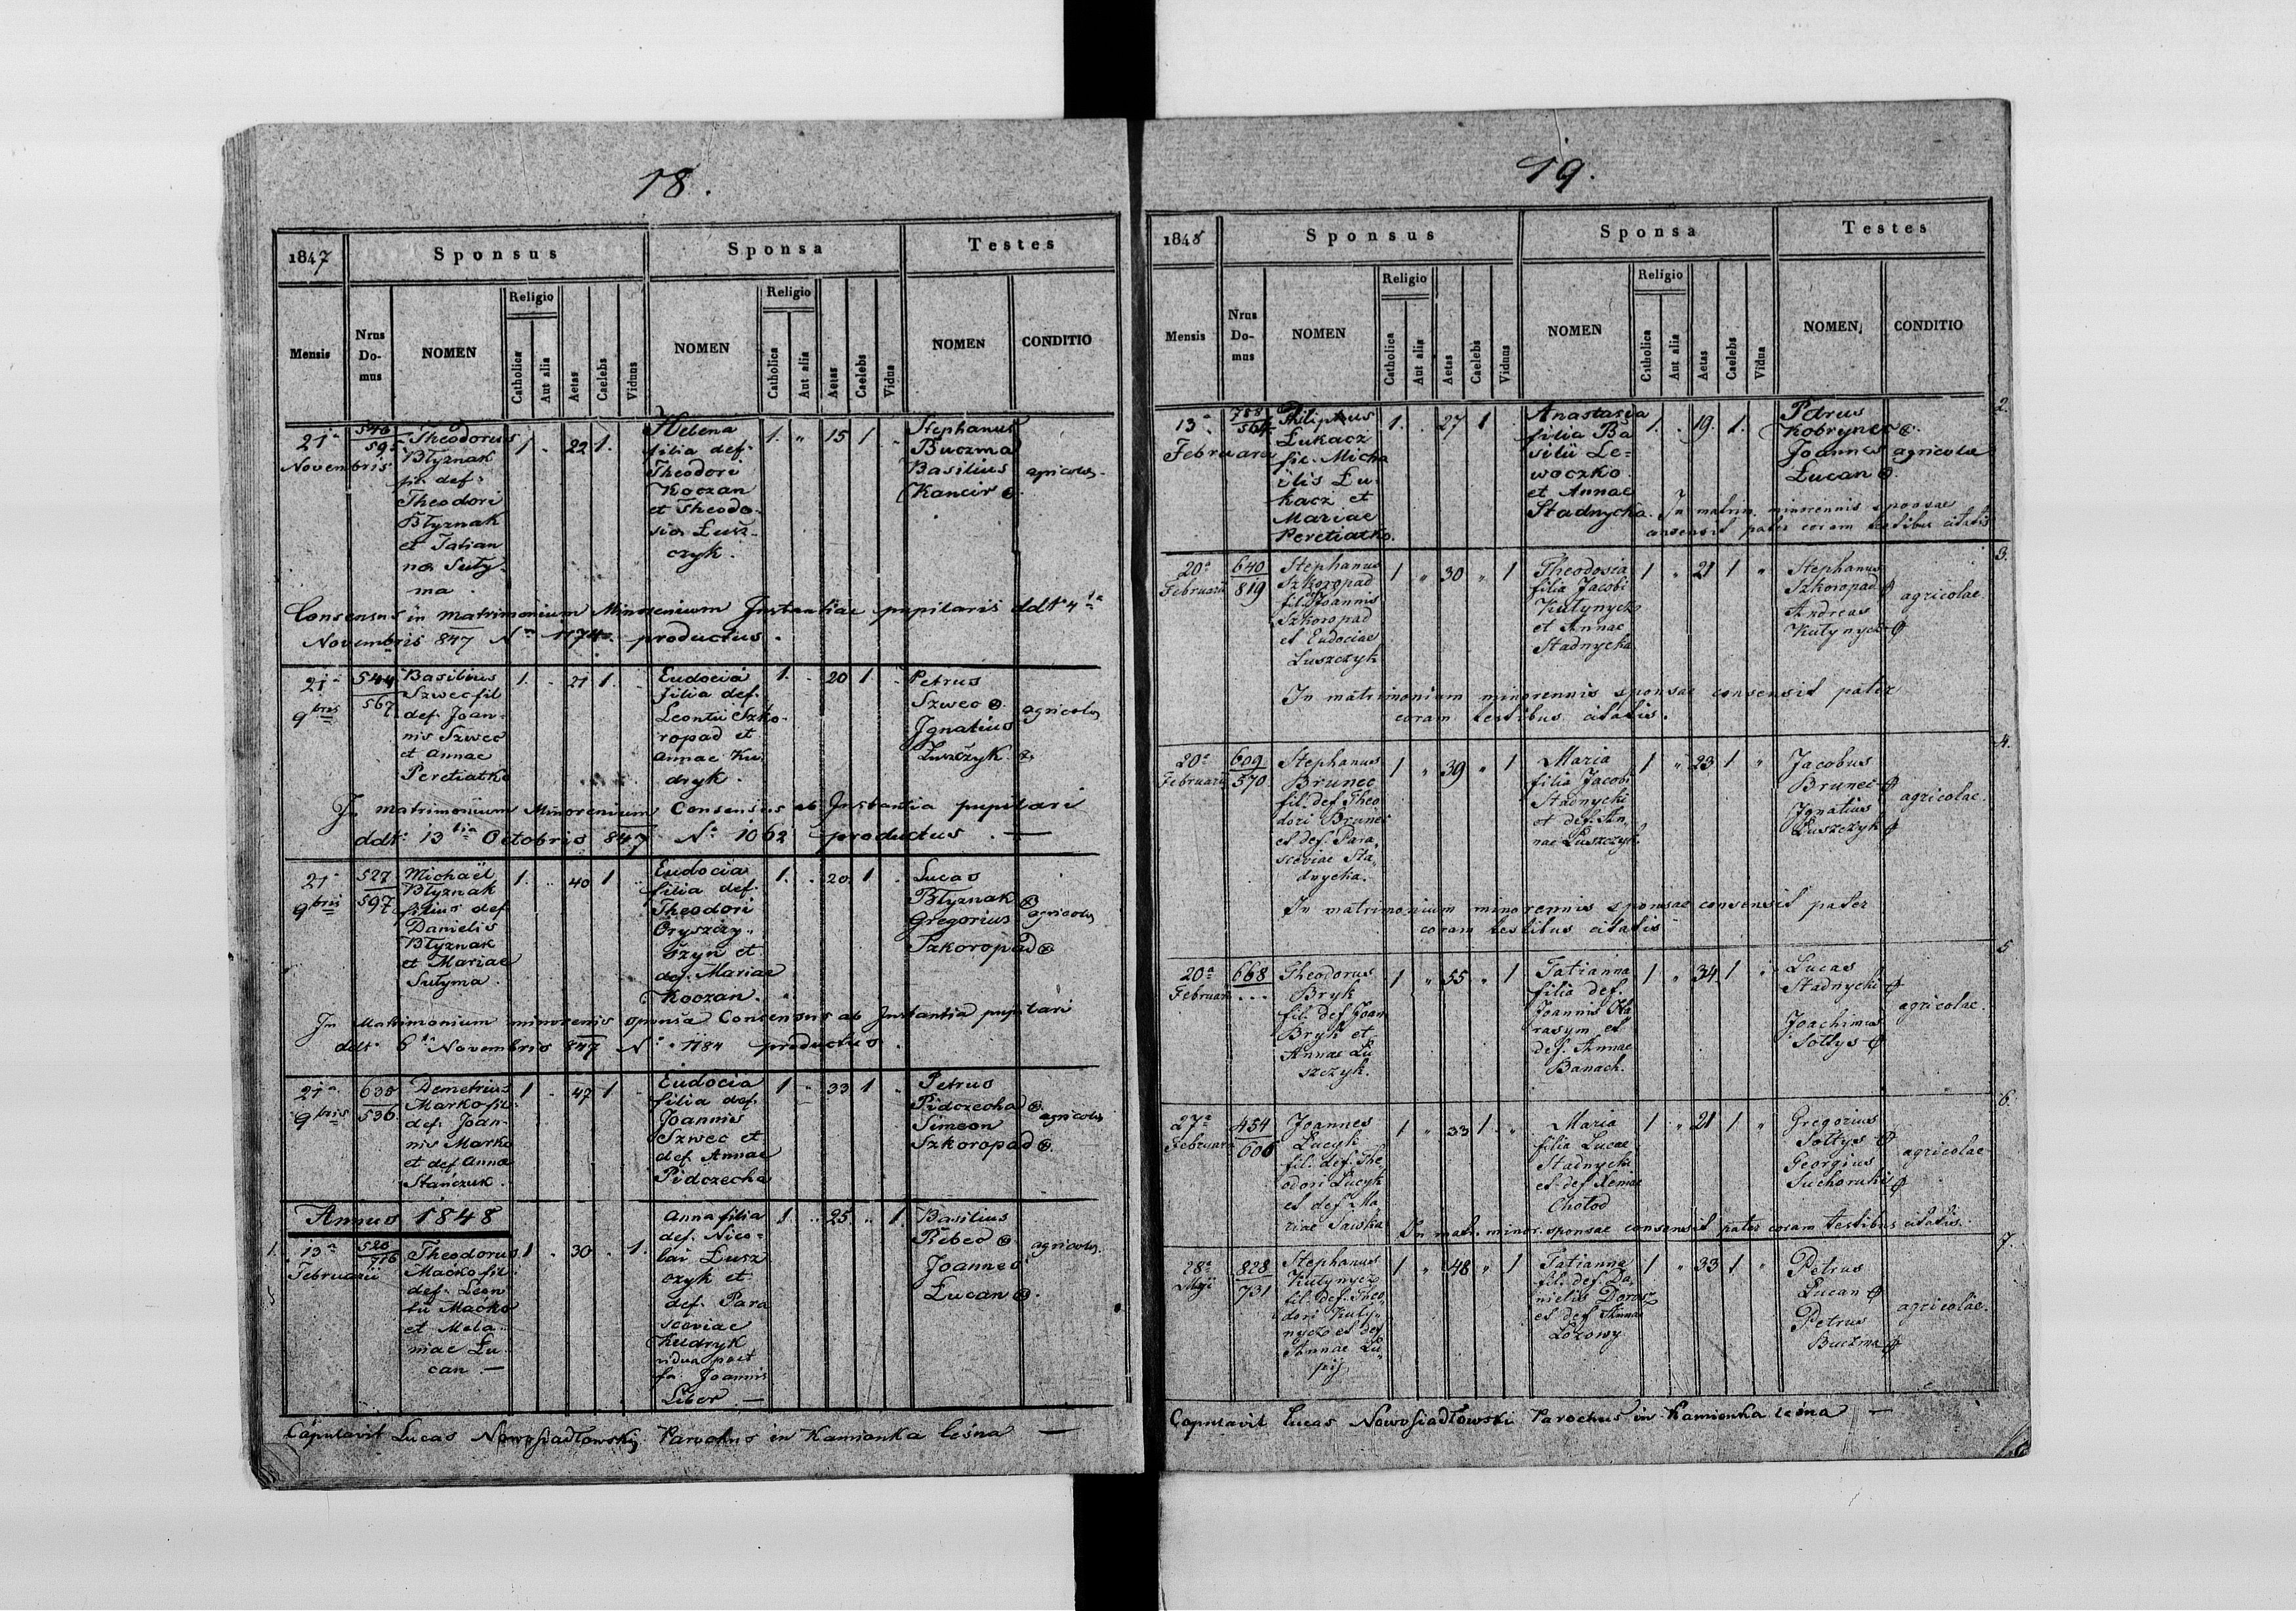 18.
1847
Sponsus
Sponsa
Testes
Mensis
Nrus Do- mus
NOMEN
Religio
Catholica
Aut alia
Aetas
Caelebs
Viduus
NOMEN
Religio
Catholica
Aut alia
Aetas
Caelebs
Vidua
NOMEN
CONDITIO
21a
Novembris
Theodorus
Błyznak
fil. def.
Theodori
Błyznak
et Tatian
nae Suty-
ma
1 22 1.
Helena
filia def.
Theodori
Koczan
et Theodo-
siae Łusz-
czyk.
1. " 15 1
Stephanus
Buczma
Basilius
Kancir
agricolae
Consensus in matrimonium Minorenium Instantiae pupilaris ddto 4ta
Novembris 847 No 1174 productus.
21a
9bris
544
567
Basilius
Szwec fil
def. Joan-
nis Szwec
et Annae
Peretiatko
1. 21 1.
Eudocia
filia def.
Leontii Szko-
ropad et
Annae Ku
dryk.
1. 20 1
Petrus
Szwec
Ignatius
Łuszczyk
agricolae
In matrimonium Minorenium Consensus ab Instantia pupilari
ddto 13tia Octobris 847 No 1062 productus. —
21a
9bris
527
597
Michaël
Błyznak
filius def
Danielis
Błyznak
et Mariae
Sutyma.
1. 40 1
Eudocia
filia def.
Theodori
Oryszczy-
szyn et
def. Mariae
Koczan.
1. 20 1
Lucas
Błyznak
Gregorius
Szkoropad
agricolae
In Matrimonium minorenis sponsa Consensus ab Instantia pupilari
ddto 6ta Novembris 847 No 1184 productus.
21a
9bris
630
536
Demetrius
Marko fil.
def. Joan-
nis Marko
et def Annae
Stańczuk.
1 47 1
Eudocia
filia def.
Joannis
Szwec et
def Annae
Pidczecha
1 33 1
Petrus
Pidczecha
Simeon
Szkoropad
agricolae
Annus 1848
1. 13a
Februarii
520
776
Theodorus
Maćko fil.
def. Leon
tii Maćko
et Mela-
niae Łu-
can —
1 30 1.
Anna filia
def. Nico-
lai Łusz
czyk et
def. Para
sceviae
Kudryk
vidua post
fa Joannis
Liber —
1. 25 " 1
Basilius
Bebeo
Joannes
Łucan
agricolae
Copulavit Lucas Nowosiadłowski Parochus in Kamionka leśna —
19.
1848
Sponsus
Sponsa
Testes
Mensis
Nrus Do- mus
NOMEN
Religio
Catholica
Aut alia
Aetas
Caelebs
Viduus
NOMEN
Religio
Catholica
Aut alia
Aetas
Caelebs
Vidua
NOMEN
CONDITIO
2.
13a
Februarii
564
Philippus
Łukacz
fil. Micha
ëlis Łu-
kacz et
Mariae
Peretiatko.
1. 27 1
Anastasia
filia Ba
silii Le-
woczko
et Annae
Stadnycha.
1. 19 1.
Petrus
Kobryniec
Joannes
Łucan
agricolae
In matrim. minorennis sponsae
consensit pater coram testibus citatis
3.
20a
Februarii
640
819
Stephanus
Szkoropad
fil. Joannis
Szkoropad
et Eudociae
Łuszczyk
1 " 30 " 1
Theodosia
filia Jacobi
Kutynycz
et Annae
Stadnycka
1 " 21 1 "
Stephanus
Szkoropad
Andreas
Kutynycz
agricolae
In matrimonium minorennis sponsae consensit pater
coram testibus citatis.
4.
20a
Februarii
609
570
Stephanus
Brunec
fil. def. Theo
dori Brunec
et def. Para-
sceviae Sta-
dnycka.
1 " 39 " 1
Maria
filia Jacobi
Stadnycki
et def. An-
nae Łuszczyk.
1 " 23 1 "
Jacobus
Brunec
Ignatius
Łuszczyk
agricolae.
In matrimonium minorennis sponsae consensit pater
coram testibus citatis
5
20a
Februarii
668
...
Theodorus
Bryk
fil. def Joan
Bryk et
Annae Łu
szczyk.
1 " 55 " 1
Tatianna
filia def.
Joannis Ha
rasym et
def. Annae
Banach.
1 " 34 1 "
Lucas
Stadnycki
Joachimus
Sołtys
agricolae.
6.
27a
Februarii
454
606
Joannes
Łucyk
fil. def. The
odori Łucyk
et def Ma
riae Sawka
1 " 33 1 "
Maria
filia Lucae
Stadnycki
et def Xeniae
Chołod
1 " 21 1 "
Gregorius
Sołtys
Georgius
Suchoruki
agricolae
In matr. minor. sponsae consensit pater coram testibus citatis.
7.
28a
Maji
828
731
Stephanus
Kutynycz
fil. def. Theo-
dori Kuty-
nycz et def
Annae Łu-
pij
1 " 48 " 1
Tatianna
fil. def Da-
nielis Dorosz
et def Annae
Łozowy
1 " 33 1 "
Petrus
Łucan
Petrus
Buczma
agricolae.
Copulavit Lucas Nowosiadłowski Parochus in Kamionka leśna —